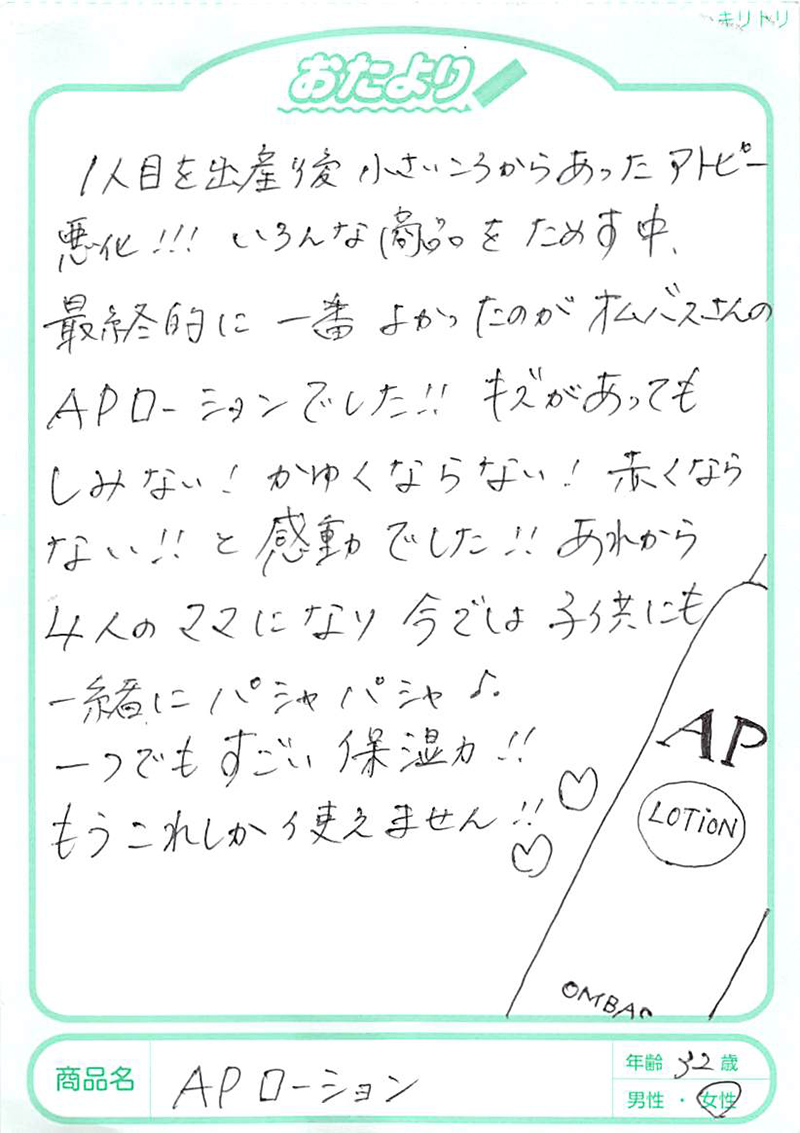 キリトリ
おたより
1人目を出産後 小さいころからあったアトピー
悪化!!! いろんな商品をためす中、
最終的に一番よかったのがオムバスさんの
APローションでした!! キズがあっても
しみない! かゆくならない! 赤くなら
ない!! と感動でした!! あれから
4人のママになり 今では子供にも
一緒にパシャパシャ♪。
一つでもすごい保湿力!!
もうこれしか使えません!!
AP
LOTiON
OMBAS
商品名 APローション
年齢 32 歳
男性 ・ 女性